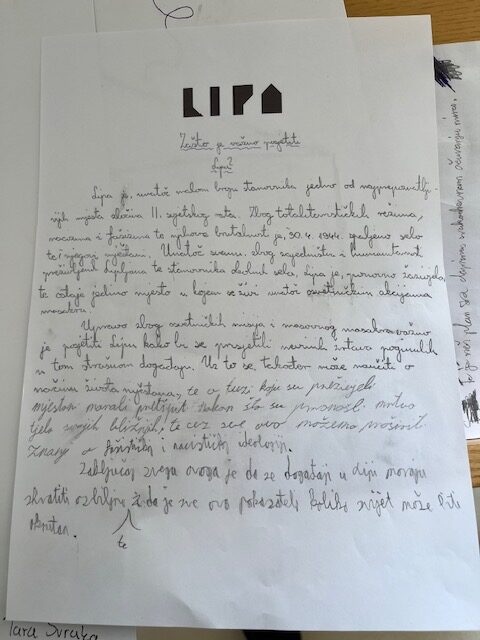 LIPA
Zašto je važno posjetiti
Lipu?
Lipa je, unatoč malom broju stanovnika jedno od najpoznatlji-
vijih mjesta zločina II. svjetskog rata. Zbog totalitarističkih režima,
nacizma i fašizma te njihove brutalnosti je, 30. 4. 1944. spaljeno selo
te njegovi mještani. Unatoč svemu, zbog zajedništva i humanosti
preživjelih Lipljana te stanovnika okolnih sela, Lipa je, ponovno zaživjela
te ostaje jedino mjesto u kojem se živi unatoč osvetničkim akcijama
masakru.
Upravo zbog osvetničkih misija i masovnog masakra važno
je posjetiti Lipu kako bi se prisjetili nevinih žrtava poginulih
u tom strašnom događaju. Uz to se, također može naučiti o
načinu života mještana, te o tuzi koju su preživjeli
mještani morali pretrpjeti nakon što su pronosli mrtva
tjela svojih bližnjih, te cez sve ovo možemo proširit
znanje o fašističkoj i nacističkoj ideologiji.
Zaključaj svega ovoga je da se događaji u Lipi moraju
shvatiti ozbiljno i da je sve ovo pokazatelj koliko svijet može biti
okrutan.
te
Tara Svraka